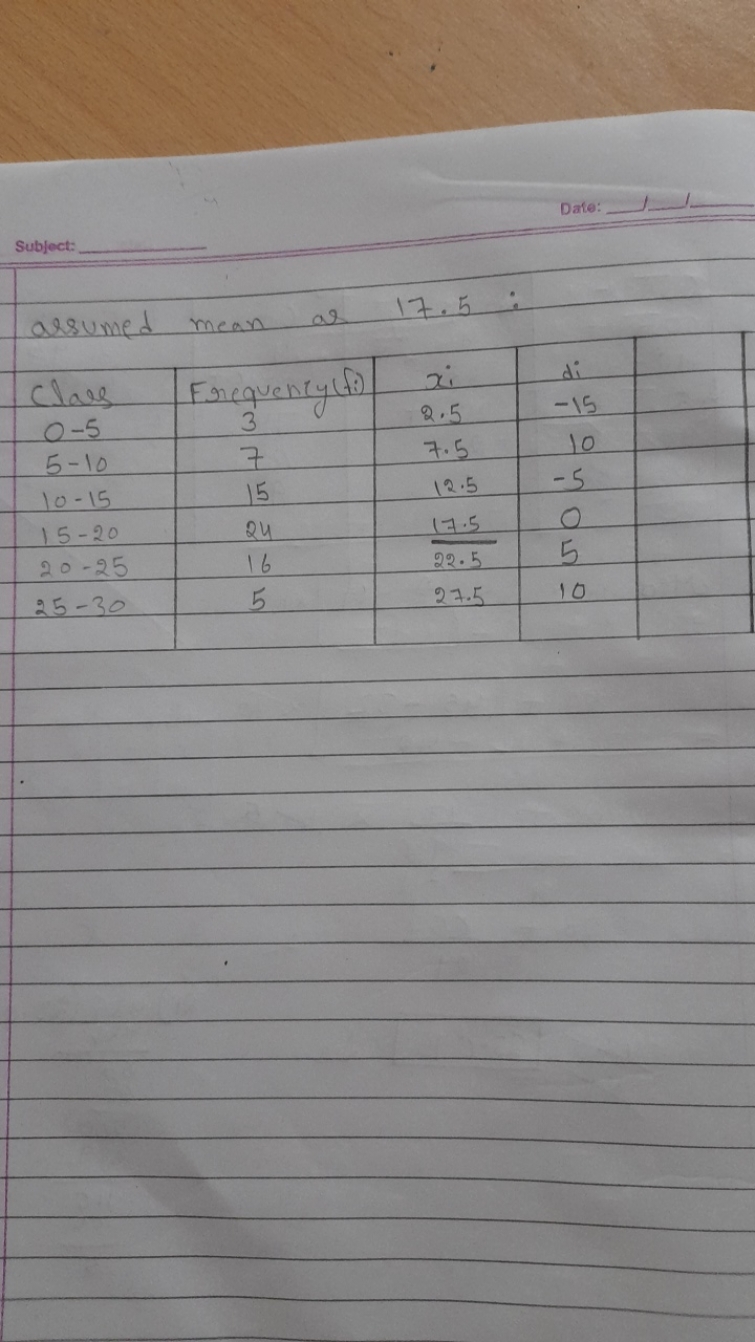 Subject:
Date: __/__/__
assumed mean as 17.5 :
Class Frequency(fi) xi di
0-5 3 2.5 -15
5-10 7 7.5 10
10-15 15 12.5 -5
15-20 24 17.5 0
20-25 16 22.5 5
25-30 5 27.5 10